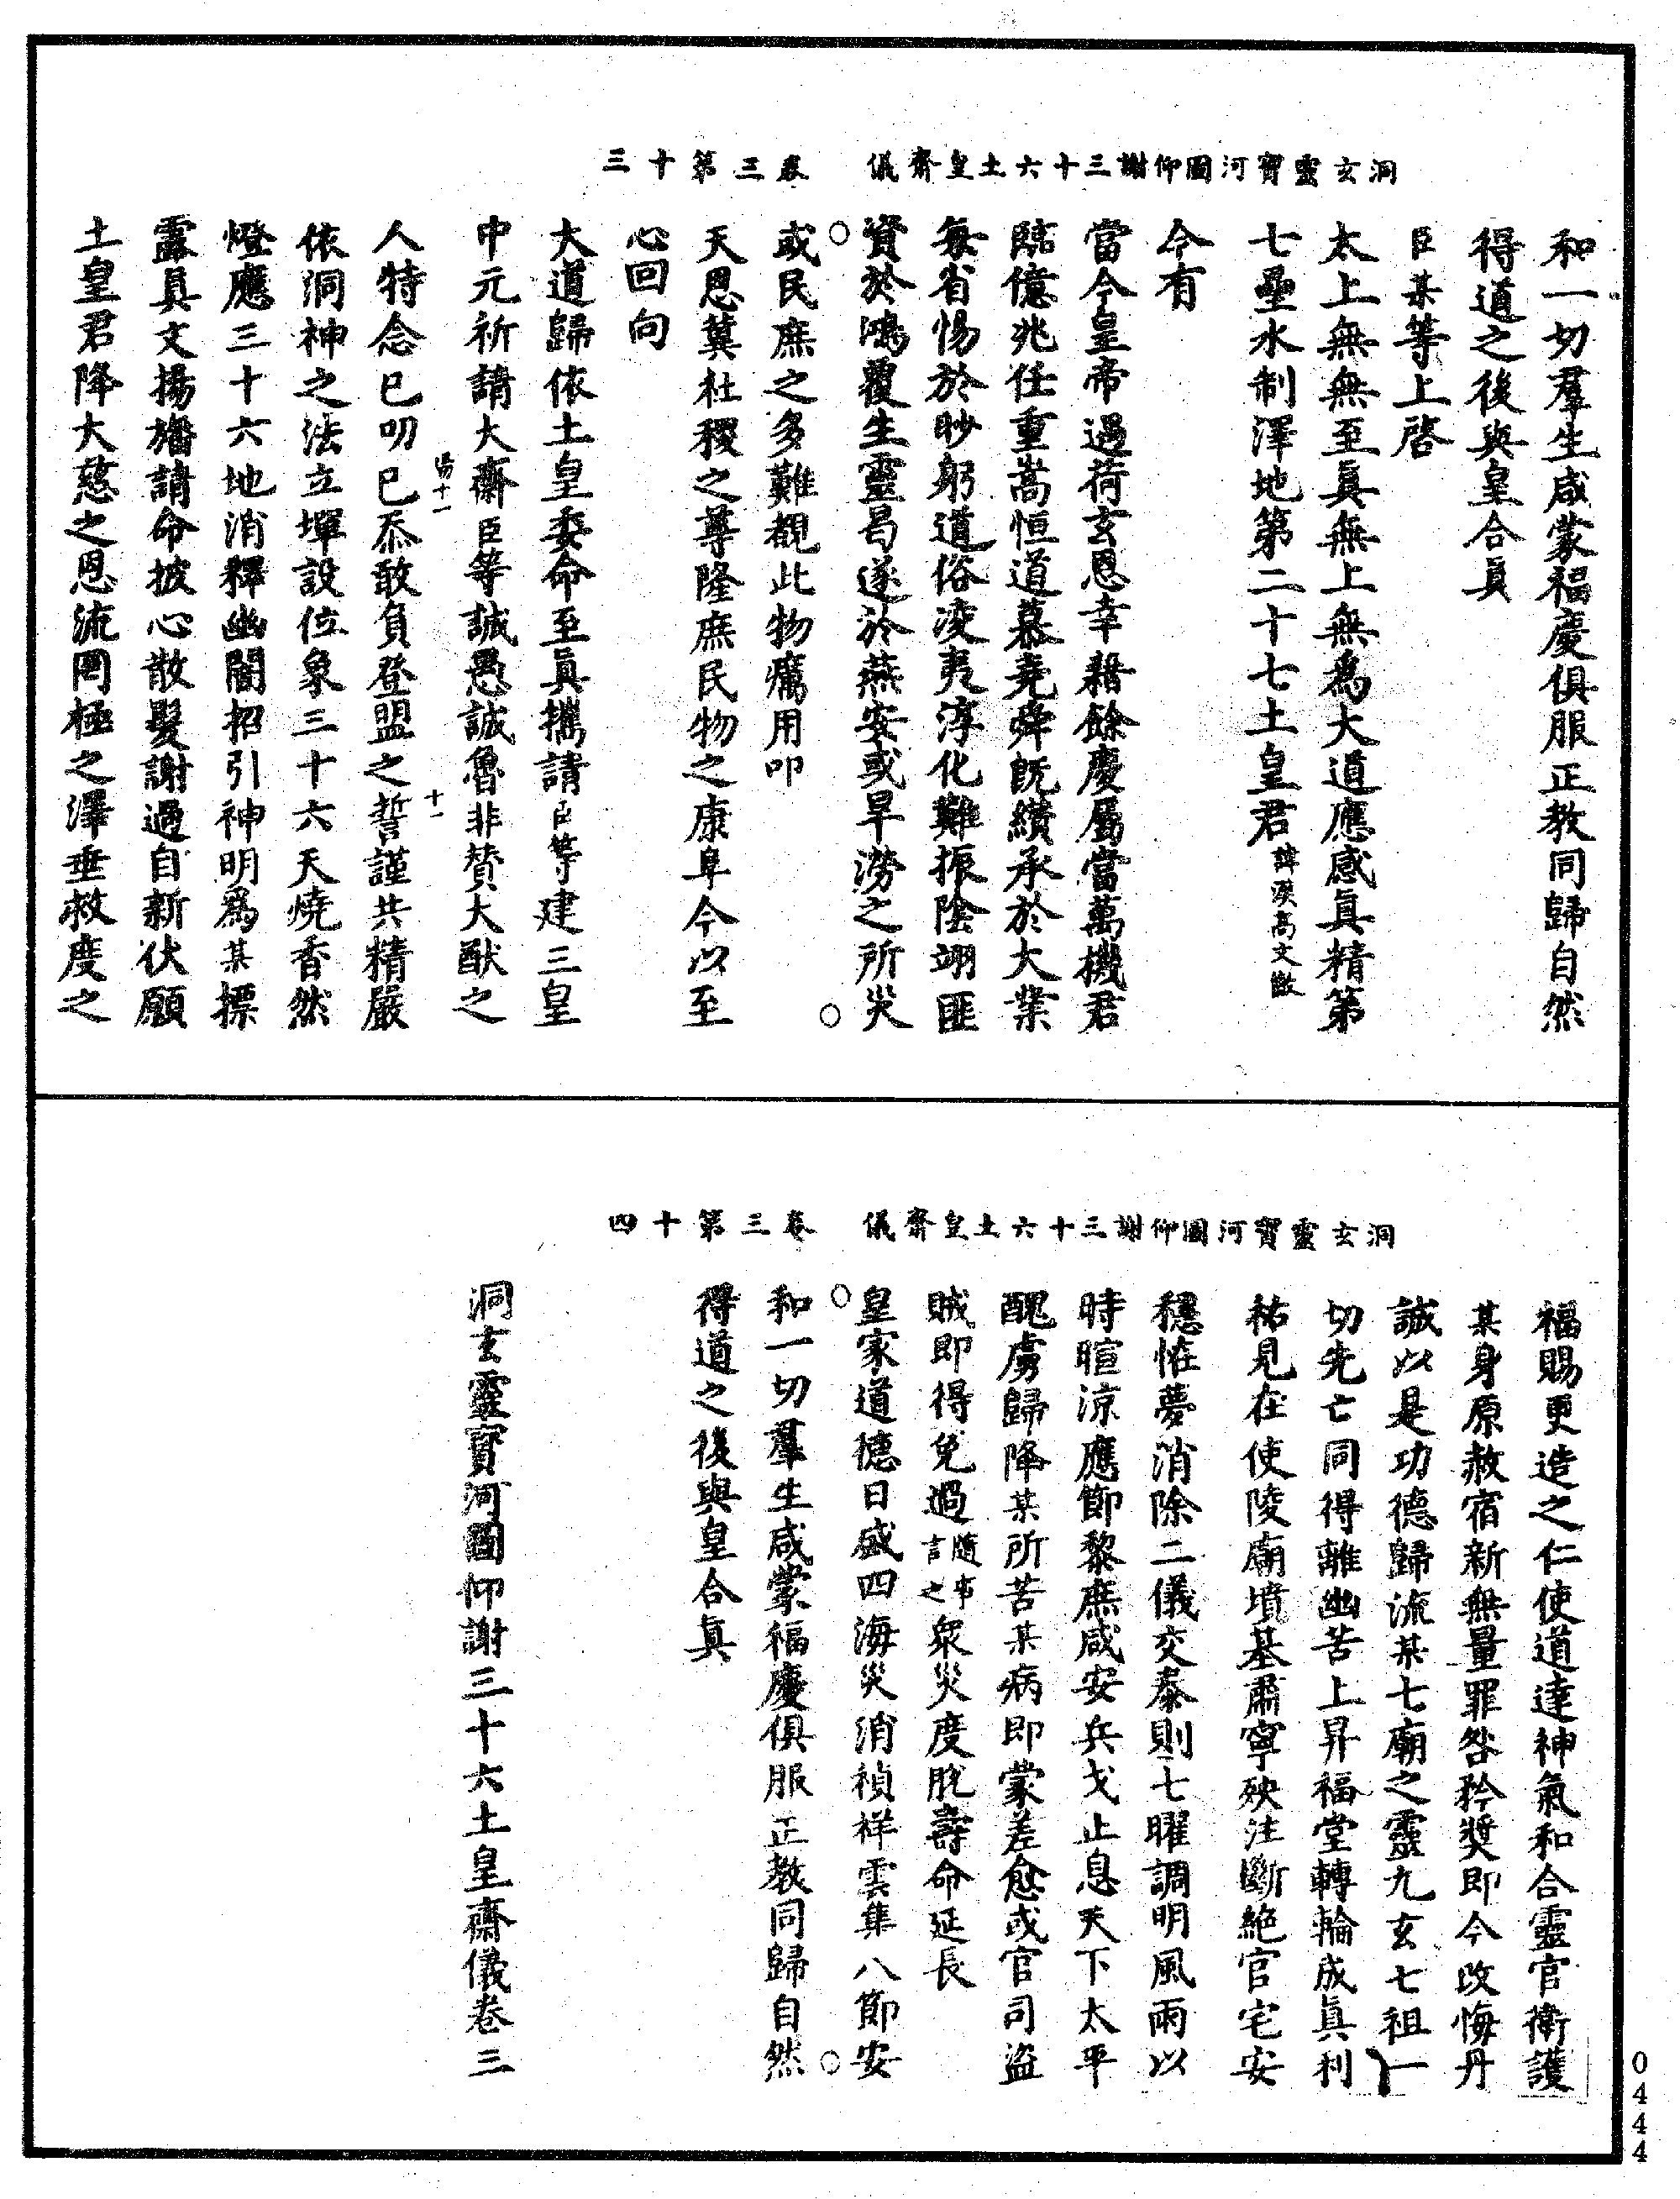 洞玄靈寶河圖仰謝三十六土皇齋儀　卷三第十三
和一切羣生咸蒙福慶俱服正教同歸自然
得道之後與皇合真
臣某等上啓
太上無無至真無上無為大道應感真精第
七壘水制澤地第二十七土皇君諱漢高文徹
今有
當今皇帝過荷玄恩幸藉餘慶屬當萬機君
臨億兆任重嵩恒道慕堯舜既纘承於大業
每省惕於眇躬道俗凌夷淳化難振陰翊匪
資於鴻覆生靈曷遂於燕安或旱澇之所災
或民庶之多難覩此物癘用叩
天恩冀社稷之尊隆庶民物之康阜今以至
心回向
大道歸依土皇委命至真攜請臣等建三皇
中元祈請大齋臣等誠愚誠魯非贊大猷之
人特念已叨已忝敢負登盟之誓謹共精嚴
依洞神之法立墠設位象三十六天燒香然
燈應三十六地消釋幽闇招引神明為某摽
露真文揚旛請命披心散髮謝過自新伏願
土皇君降大慈之恩流罔極之澤垂救度之
湯十一
十一
洞玄靈寶河圖仰謝三十六土皇齋儀　卷三第十四
福賜更造之仁使道達神氣和合靈官衛護
某身原赦宿新無量罪咎矜奬即今改悔丹
誠以是功德歸流某七廟之靈九玄七祖一
切先亡同得離幽苦上昇福堂轉輪成真利
祐見在使陵廟墳基肅寧殃注斷絕官宅安
穩恠夢消除二儀交泰則七曜調明風雨以
時暄涼應節黎庶咸安兵戈止息天下太平
醜虜歸降某所苦某病即蒙差愈或官司盜
賊即得免過隨事言之眾災度脫壽命延長
皇家道德日盛四海災消禎祥雲集八節安
和一切羣生咸蒙福慶俱服正教同歸自然
得道之後與皇合真
洞玄靈寶河圖仰謝三十六土皇齋儀卷三
0444